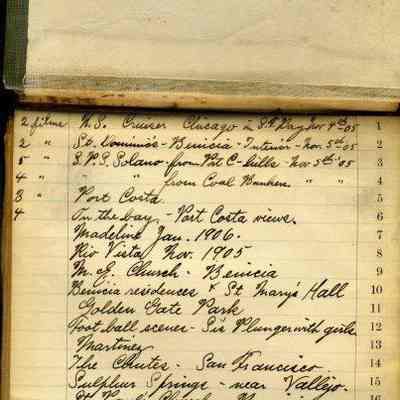 2 films U.S. Cruiser Chicago in S.F. Bay Nov 4th 05 1
2 " St. Dominic's - Benicia - Interior - Nov. 5th 05 2
5 " S.P.S. Solano - from Pt C - hills - Nov 5th '05 3
4 " " " from Coal Bunkers. " " 4
3 " Port Costa. 5
4 On the bay - Port Costa views. 6
Madeline Jan. 1906. 7
Rio Vista, Nov. 1905 8
M. E. Church - Benicia 9
Benicia residences & St. Mary's Hall 10
Golden Gate Park 11
Foot ball scenes - Sis Plunger with girls 12
Martinez 13
The Chutes - San Francisco. 14
Sulphur Springs - near Vallejo. 15
St. Paul's Church 16